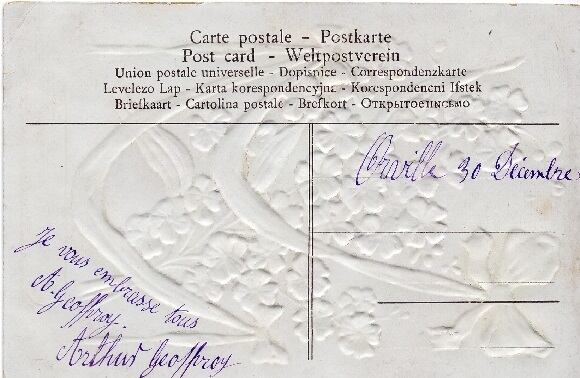 Carte postale - Postkarte
Post card - Weltpostverein
Union postale universelle - Dopisnice - Correspondenzkarte
Levelezo Lap - Karta korespondencyjna - Korespondencni lfstek
Briefkaart - Cartolina postale - Brefkort - Открытоеписьмо
Orville 30 Décembre
Je vous embrasse tous
A. Geoffroy.
Arthur Geoffroy